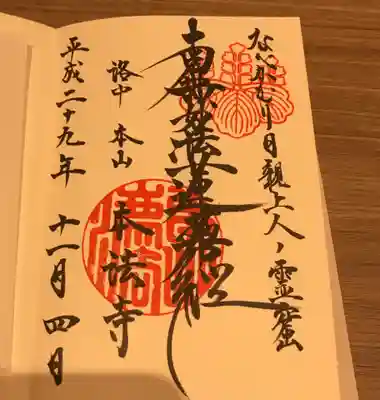 なべかむり日親上人ノ霊窟
南無妙法蓮華経
洛中 本山
本法寺
平成二十九年 十一月 四日